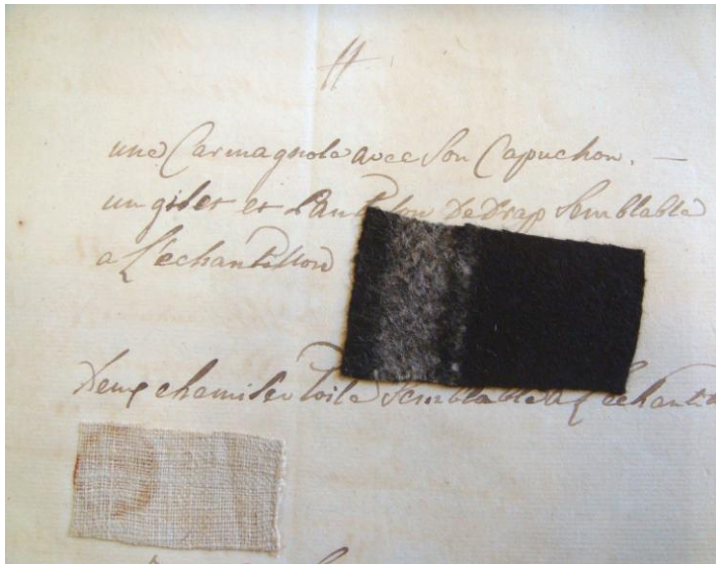 une Carmagnole avec son Capuchon. —
un gilet et Pantalon De Drap Semblable
a L'echantillon
Deux chemises toile Semblable a L'echanti